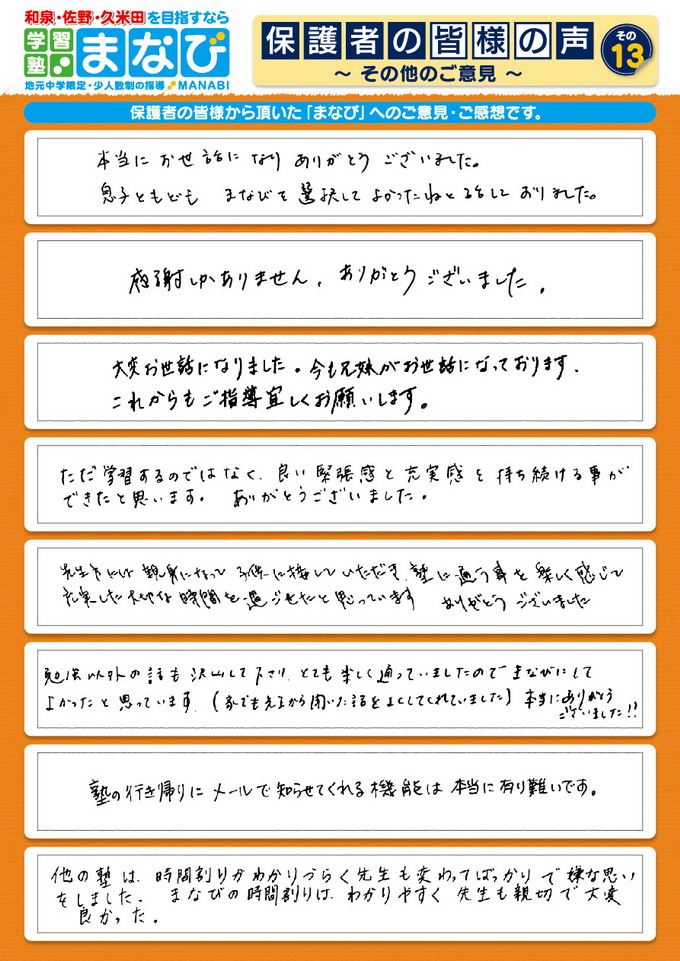 和泉・佐野・久米田を目指すなら
学習塾 まなび
地元中学限定・少人数制の指導 MANABI
保護者の皆様の声 その13
～ その他のご意見 ～
保護者の皆様から頂いた「まなび」へのご意見・ご感想です。
本当にお世話になりありがとうございました。
息子ともども まなびを選択してよかったねと話しておりました。
感謝しかありません。ありがとうございました。
大変お世話になりました。今も兄妹がお世話になっております。
これからもご指導宜しくお願いします。
ただ学習するのではなく、良い緊張感と充実感を持ち続ける事が
できたと思います。 ありがとうございました。
先生方には親身になって子供に接していただき、塾に通う事を楽しく感じて
充実した大切な時間を過ごせたと思っています ありがとうございました
勉強以外の話も沢山して下さり、とても楽しく通っていましたのでまなびにして
よかったと思っています。(家でも先生から聞いた話をよくしてくれていました) 本当にありがとう
ございました!!
塾の行き帰りにメールで知らせてくれる機能は本当に有り難いです。
他の塾は、時間割りがわかりづらく先生も変わってばっかりで嫌な思い
をしました。 まなびの時間割りは、わかりやすく先生も親切で大変
良かった。